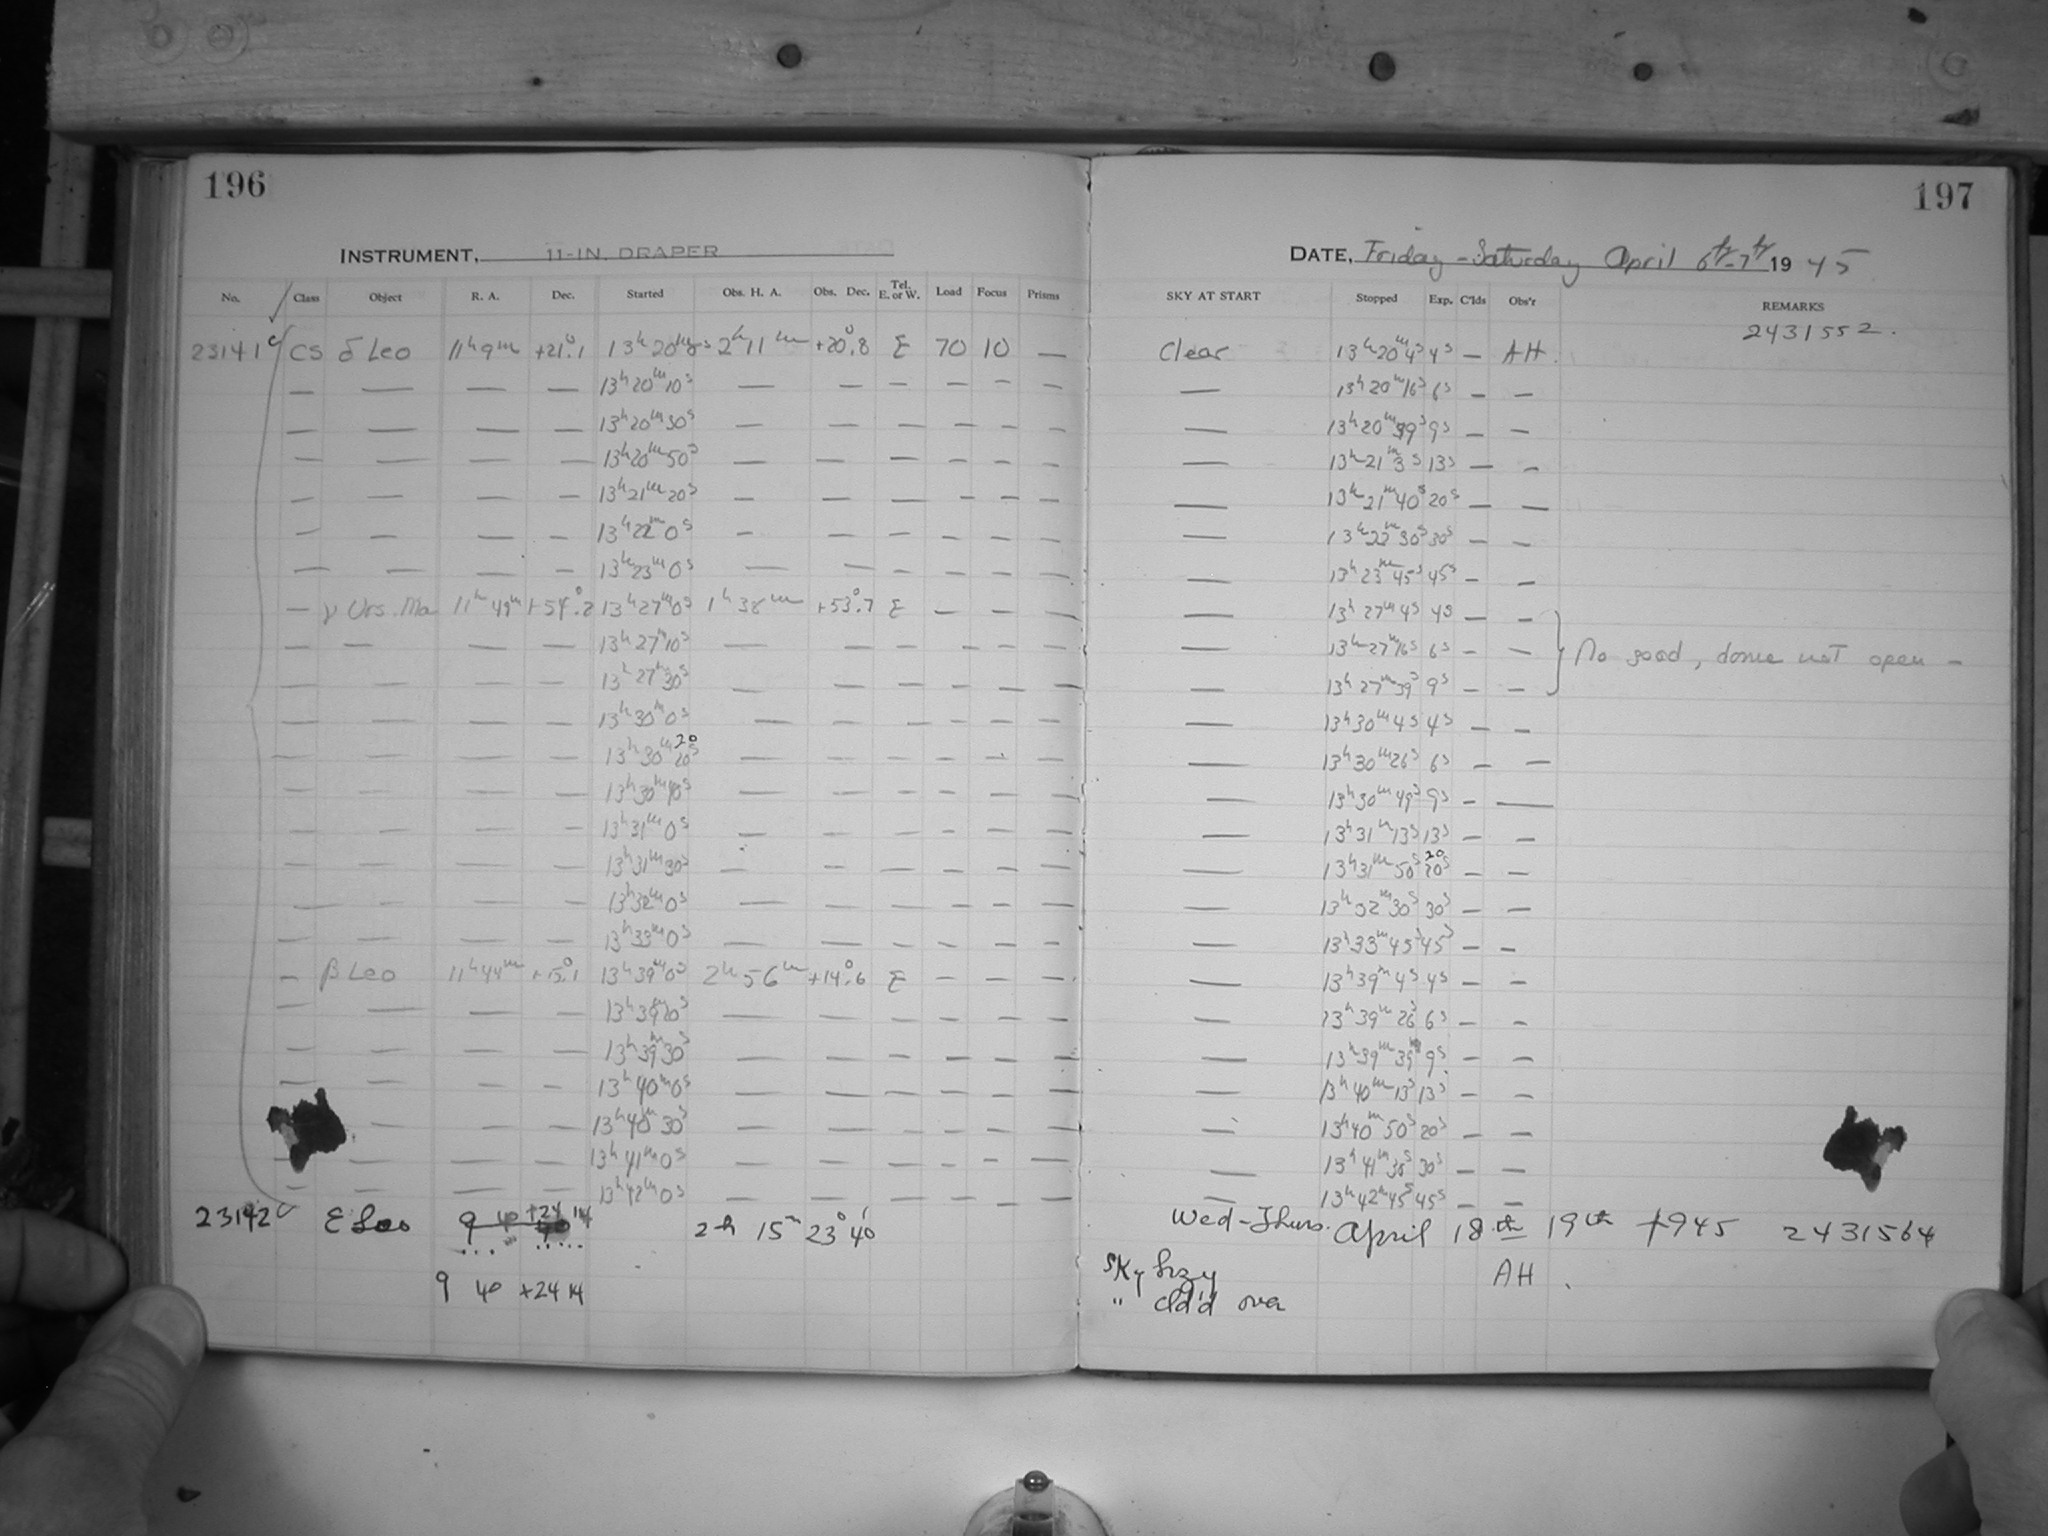 196
INSTRUMENT, 11-IN. DRAPER
No. Class Object R. A. Dec. Started Obs. H. A. Obs. Dec. Tel. E. or W. Load Focus Prisms
23141 CS δ Leo 11h 9m +21°.1 13h 20m 0s 2h 11m +20°.8 E 70 10 —
— — — — 13h 20m 10s — — — — — —
— — — — 13h 20m 30s — — — — — —
— — — — 13h 20m 50s — — — — — —
— — — — 13h 21m 20s — — — — — —
— — — — 13h 22m 0s — — — — — —
— — — — 13h 23m 0s — — — — — —
— γ Urs. Ma 11h 49m +54°.2 13h 27m 0s 1h 38m +53°.7 E — — —
— — — — 13h 27m 10s — — — — — —
— — — — 13h 27m 30s — — — — — —
— — — — 13h 30m 0s — — — — — —
— — — — 13h 30m 20s — — — — — —
— — — — 13h 30m 40s — — — — — —
— — — — 13h 31m 0s — — — — — —
— — — — 13h 31m 30s — — — — — —
— — — — 13h 32m 0s — — — — — —
— — — — 13h 33m 0s — — — — — —
— β Leo 11h 44m +15°.1 13h 39m 0s 2h 56m +14°.6 E — — —
— — — — 13h 39m 20s — — — — — —
— — — — 13h 39m 30s — — — — — —
— — — — 13h 40m 0s — — — — — —
— — — 13h 40m 30s — — — — — —
— — — — 13h 41m 0s — — — — — —
— — — — 13h 42m 0s — — — — — —
23142 ε Leo 9 40 +24 14 2h 15m 23° 40'
9 40 +24 14
197
DATE, Friday - Saturday April 6th-7th 1945
SKY AT START Stopped Exp. C'lds Obs'r REMARKS
2431552.
Clear 13h 20m 4s 4s — AH.
— 13h 20m 16s 6s — —
— 13h 20m 39s 9s — —
— 13h 21m 3s 13s — —
— 13h 21m 40s 20s — —
— 13h 22m 30s 30s — —
— 13h 23m 45s 45s — —
— 13h 27m 4s 4s — —
— 13h 27m 16s 6s — — No good, dome not open —
— 13h 27m 39s 9s — —
— 13h 30m 4s 4s — —
— 13h 30m 26s 6s — —
— 13h 30m 49s 9s — —
— 13h 31m 13s 13s — —
— 13h 31m 50s 20s — —
— 13h 32m 30s 30s — —
— 13h 33m 45s 45s — —
— 13h 39m 4s 4s — —
— 13h 39m 26s 6s — —
— 13h 39m 39s 9s — —
— 13h 40m 13s 13s — —
— 13h 40m 50s 20s — —
— 13h 41m 30s 30s — —
— 13h 42m 45s 45s — —
Wed-Thurs. April 18th 19th 1945 2431564
Sky hazy AH.
" cld'd over